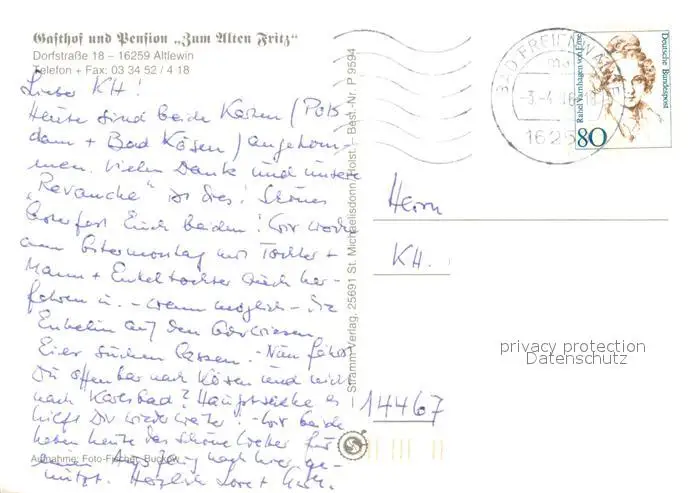 Gasthof und Pension „Zum Alten Fritz“
Dorfstraße 18 – 16259 Altlewin
Telefon + Fax: 03 34 52 / 4 18
Lieber KH!
Heute sind beide Karten (Pots-
dam + Bad Kösen) angekom-
men. Vielen Dank und unsere
„Revanche“ ist dies! Schönes
Osterfest Euch beiden! Wir
am Ostermontag mit Tochter +
Mann + Enkeltochter
fahren u. – wenn möglich – die
Enkelin auf den
Eier suchen lassen. – Nun fährst
Du offenbar nach Kösen und nicht
nach Karlsbad? Hauptsache es
hilft Dir wieder weiter! – Wir beide
haben heute das schöne Wetter für
einen Ausflug nach hier ge-
nutzt. Herzlich Lore +
Aufnahme: Foto-Fischer, Buckow
Stramm-Verlag, 25691 St. Michaelisdonn/Holst. – Best.-Nr. P 9594
BAD FREIENWALDE
16259
Deutsche Bundespost
Rahel Varnhagen von Ense
80
Herrn
KH.
14467
privacy protection
Datenschutz